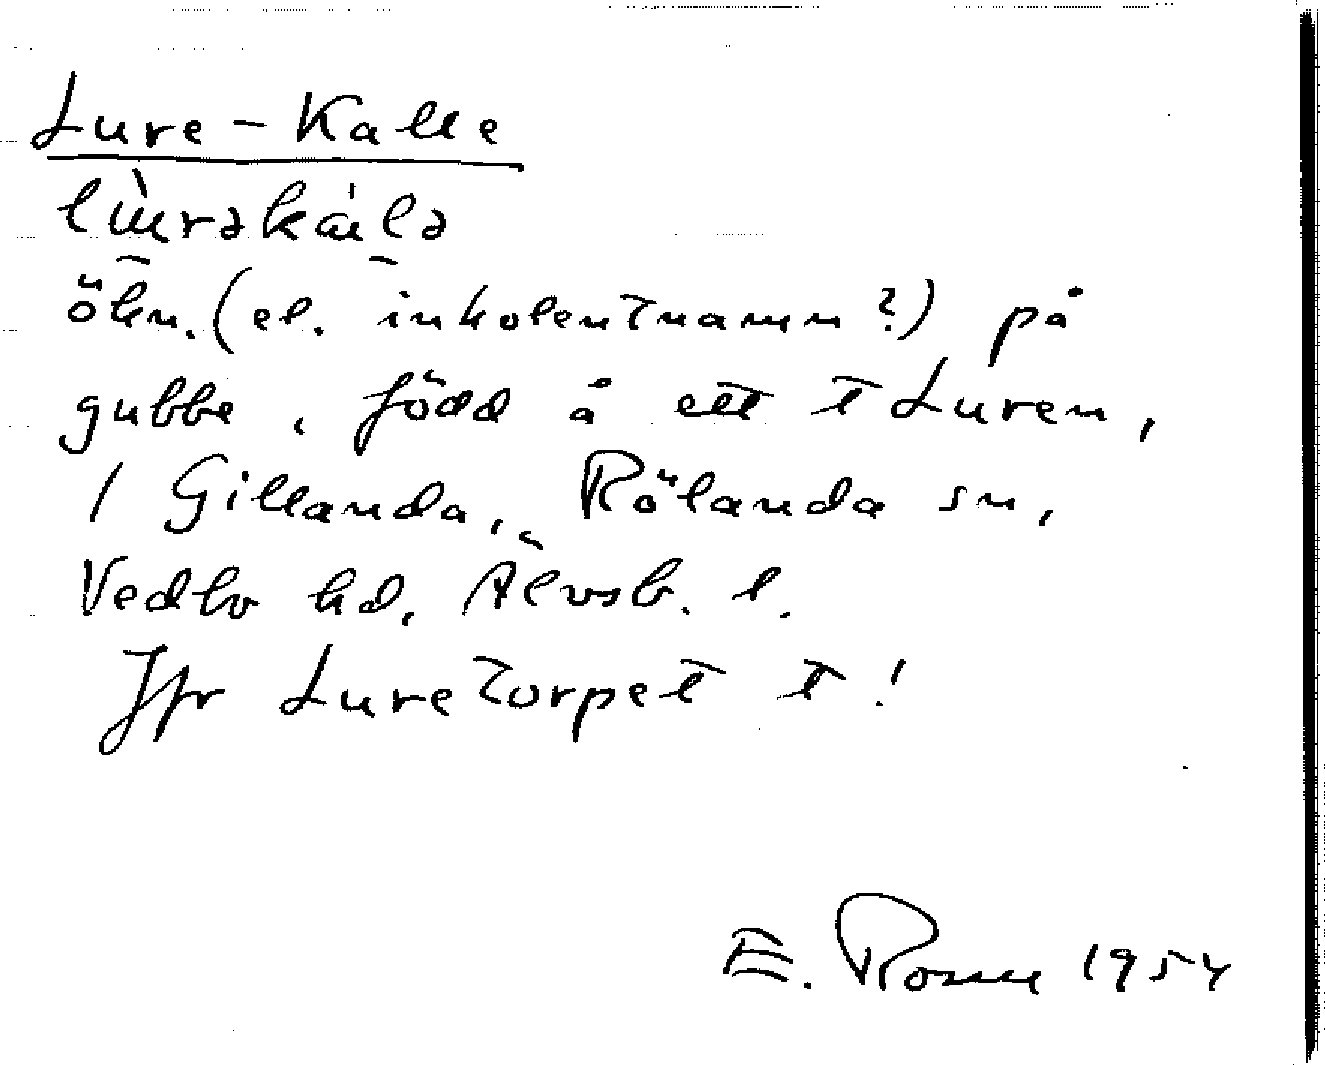 Lure-Kalle
lùrəkálə
ökn. (el. inkolentnamn?) på
gubbe, född å ett t Luren,
/ Gillanda, Rölanda sn,
Vedbo hd, Älvsb. l.
Jfr Luretorpet t!
E. Rosen 1954